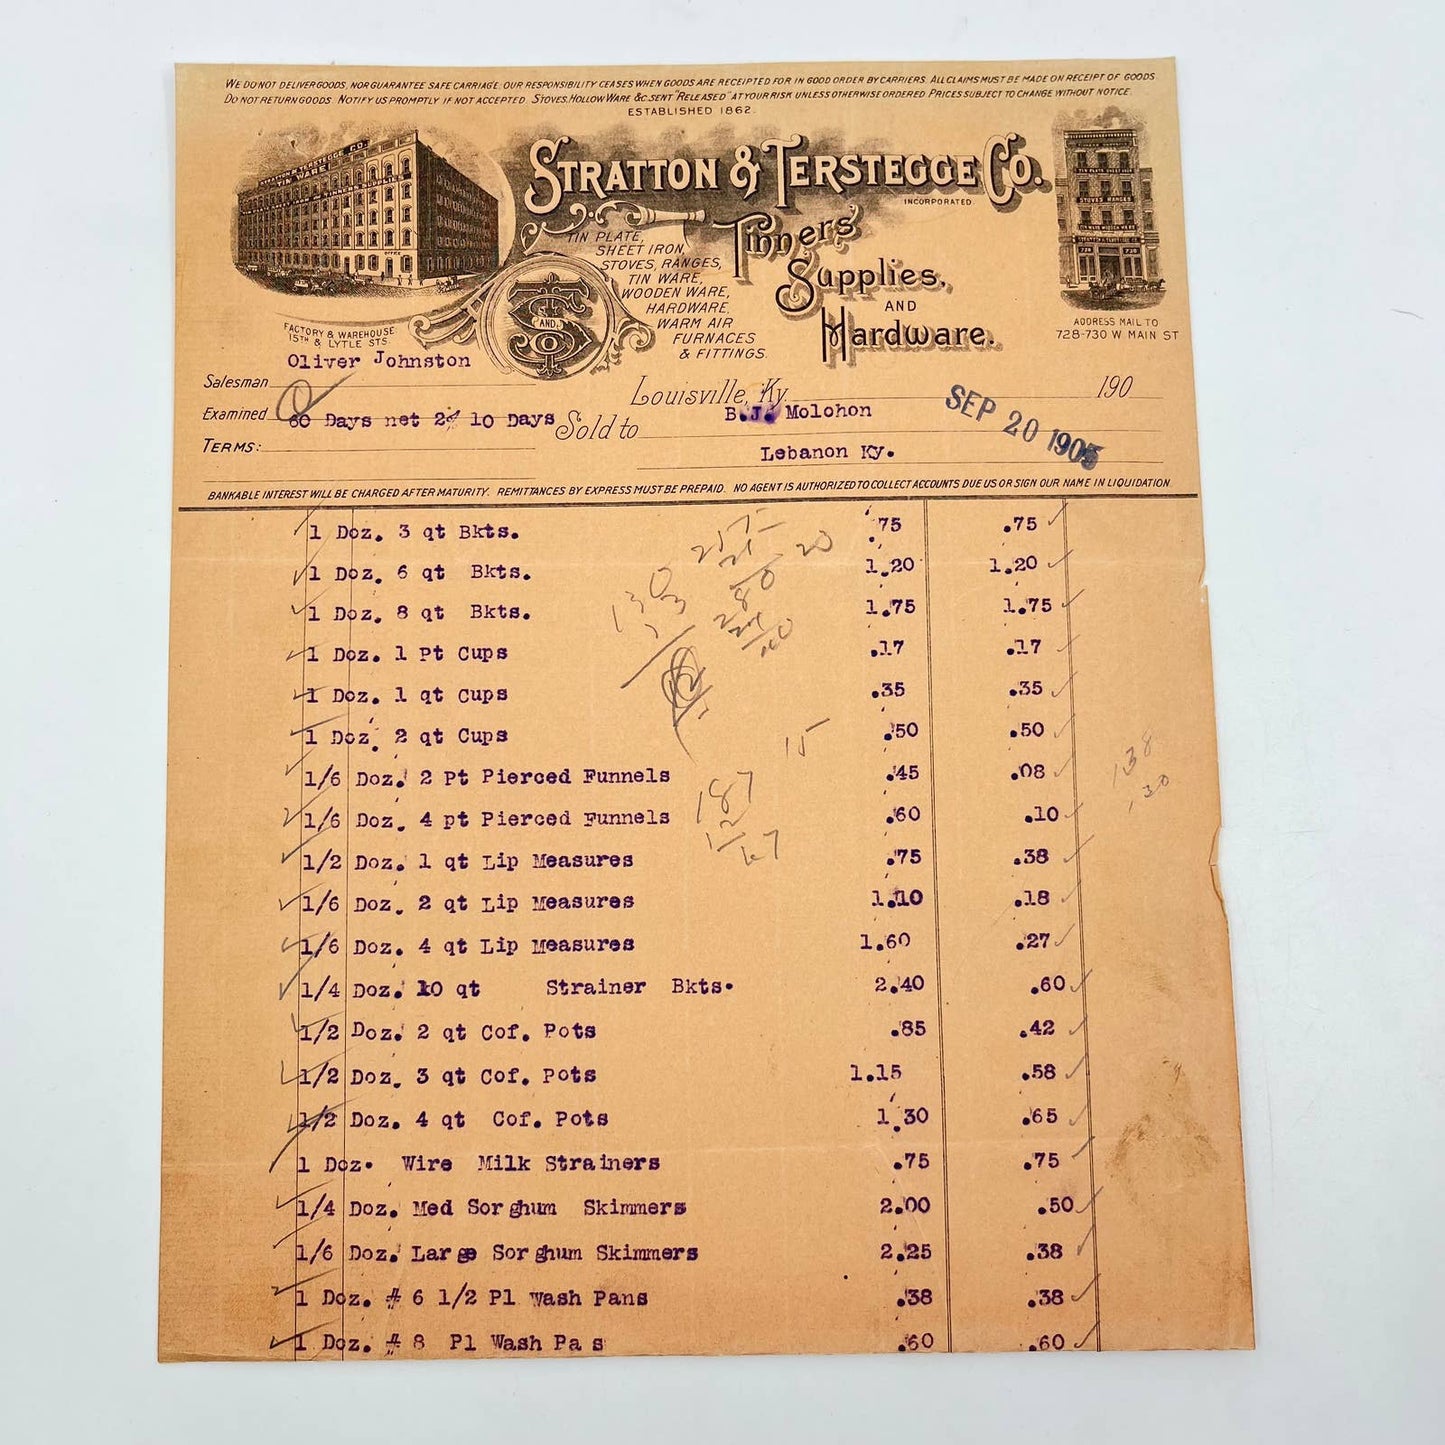 WE DO NOT DELIVER GOODS, NOR GUARANTEE SAFE CARRIAGE. OUR RESPONSIBILITY CEASES WHEN GOODS ARE RECEIPTED FOR IN GOOD ORDER BY CARRIERS. ALL CLAIMS MUST BE MADE ON RECEIPT OF GOODS.
DO NOT RETURN GOODS. NOTIFY US PROMPTLY IF NOT ACCEPTED. STOVES, HOLLOW WARE &C. SENT "RELEASED" AT YOUR RISK UNLESS OTHERWISE ORDERED. PRICES SUBJECT TO CHANGE WITHOUT NOTICE.
ESTABLISHED 1862.
STRATTON & TERSTEGGE CO.
INCORPORATED.
STRATTON & TERSTEGGE CO.
TIN WARE
OFFICE
TIN PLATE SHEET IRON
STOVES RANGES
Tinners' Supplies, AND Hardware.
TIN PLATE,
SHEET IRON,
STOVES, RANGES,
TIN WARE,
WOODEN WARE,
HARDWARE,
WARM AIR
FURNACES
& FITTINGS.
S AND T Co
FACTORY & WAREHOUSE
15TH & LYTLE STS.
ADDRESS MAIL TO
728-730 W MAIN ST
Salesman Oliver Johnston
Louisville, Ky. 190
SEP 20 1905
Examined
TERMS: 60 Days net 2% 10 Days
Sold to B.J. Molohon
Lebanon Ky.
BANKABLE INTEREST WILL BE CHARGED AFTER MATURITY. REMITTANCES BY EXPRESS MUST BE PREPAID. NO AGENT IS AUTHORIZED TO COLLECT ACCOUNTS DUE US OR SIGN OUR NAME IN LIQUIDATION.
1 Doz. 3 qt Bkts. .75 .75
1 Doz. 6 qt Bkts. 1.20 1.20
1 Doz. 8 qt Bkts. 1.75 1.75
1 Doz. 1 Pt Cups .17 .17
1 Doz. 1 qt Cups .35 .35
1 Doz. 2 qt Cups .50 .50
1/6 Doz. 2 Pt Pierced Funnels .45 .08
1/6 Doz. 4 pt Pierced Funnels .60 .10
1/2 Doz. 1 qt Lip Measures .75 .38
1/6 Doz. 2 qt Lip Measures 1.10 .18
1/6 Doz. 4 qt Lip Measures 1.60 .27
1/4 Doz. 10 qt Strainer Bkts. 2.40 .60
1/2 Doz. 2 qt Cof. Pots .85 .42
1/2 Doz. 3 qt Cof. Pots 1.15 .58
1/2 Doz. 4 qt Cof. Pots 1.30 .65
1 Doz. Wire Milk Strainers .75 .75
1/4 Doz. Med Sorghum Skimmers 2.00 .50
1/6 Doz. Large Sorghum Skimmers 2.25 .38
1 Doz. # 6 1/2 Pl Wash Pans .38 .38
1 Doz. # 8 Pl Wash Pa s .60 .60
20
130
15
187
12
67
138
.30